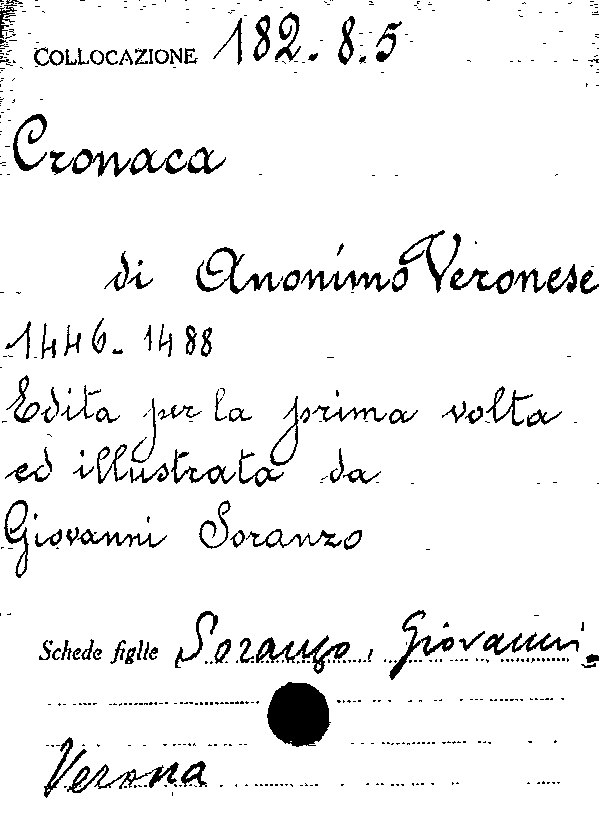 COLLOCAZIONE 182.8.5
Cronaca
di Anonimo Veronese
1446-1488
Edita per la prima volta
ed illustrata da
Giovanni Soranzo
Schede figlie Soranzo, Giovanni.
Verona